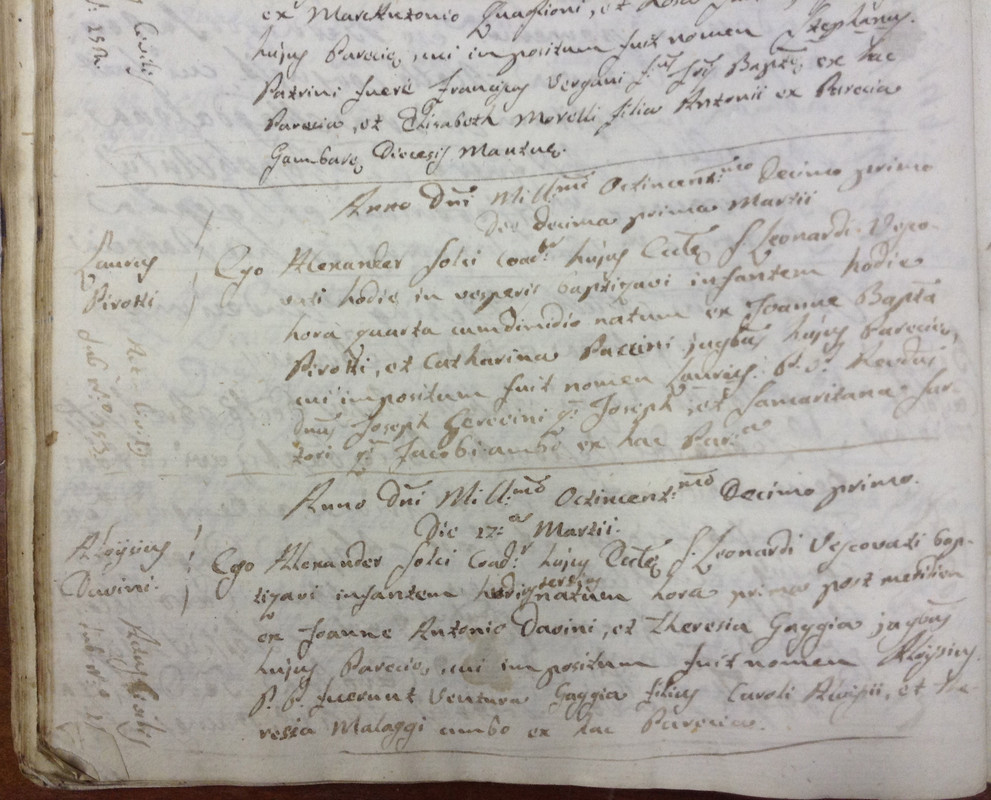 ex MarcAntonio Guastoni, et Rosa
hujus Parecię, cui impositum fuit nomen Stephanus.
Patrini fuere Franciscus Vergani f. Baptę ex hac
Parecia, et Elisabeth Morelli filia Antonii ex Parecia
Gambarę Diecesis Mantuę.
Anno Dni Mill.mo Octincent.mo Decimo primo
Die decima prima Martii
Laurus
Pirotti
Ego Alexander Solci Coad.r hujus Eccłę S. Leonardi Vesco-
vati hodie in vesperis baptizavi infantem hodie
hora quarta cum dimidio natum ex Joanne Bapta
Pirotti, et Catharina Paccini jugbus hujus Parecię,
cui impositum fuit nomen Laurus. P. P.
Dnus Joseph Gerevini qm Joseph, et Samaritana Sar-
tori qm Jacobi ambo ex hac Par.a
Anno Dni Mill.mo Octincent.mo Decimo primo.
Die 12. Martii.
Aloysius
Davini.
Ego Alexander Solci Coad.r hujus Eccłę S. Leonardi Vescovati bap-
tizavi infantem natum hora prima post meridiem
ex Joanne Antonio Davini, et Theresia Gaggia jugbus
hujus Parecię, cui impositum fuit nomen Aloysius.
P. P. fuerunt Ventura Gaggia filius Caroli Aloisii, et The-
resia Malaggi ambo ex hac Parecia.